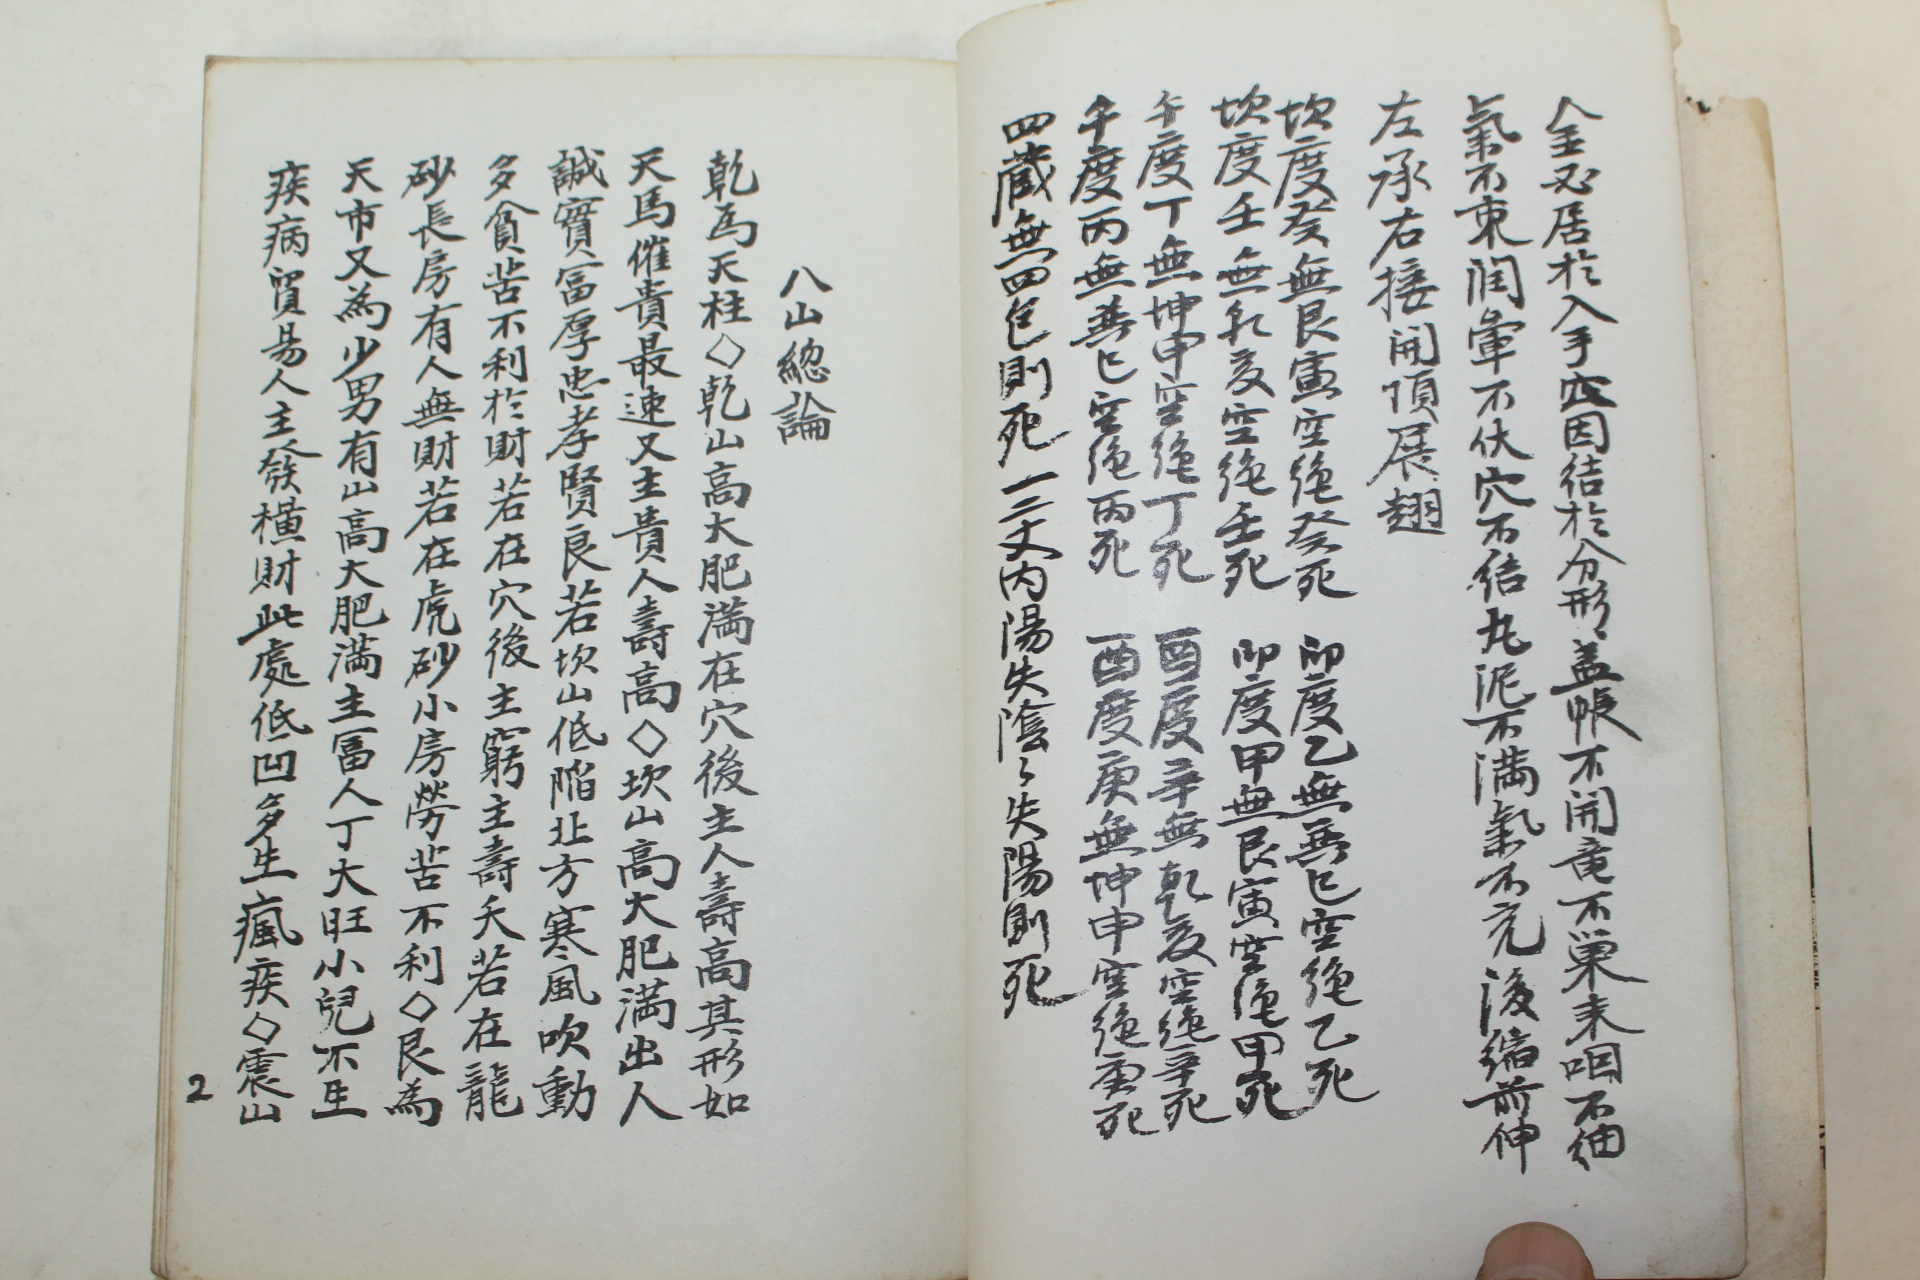 金必居於入手突因結於分形盖帳不開竜不巣束咽不細
氣不束潤暈不伏穴不結丸泥不満氣不充後縮前伸
左承右接開頂展翅
坎度癸無艮寅空絶癸死 卯度乙無巽巳空絶乙死
坎度壬無乹亥空絶壬死 卯度甲無艮寅空絶甲死
午度丁無坤申空絶丁死 酉度辛無乹亥空絶辛死
午度丙無巽巳空絶丙死 酉度庚無坤申空絶庚死
四藏無四包則死 一二丈内陽失陰〻失陽則死
八山総論
乾為天柱◇乾山高大肥満在穴後主人壽高其形如
天馬催貴最速又主貴人壽高◇坎山高大肥満出人
誠實冨厚忠孝賢良若坎山低陷北方寒風吹動
多貧苦不利於財若在穴後主窮主壽夭若在龍
砂長房有人無財若在虎砂小房勞苦不利◇艮為
天市又為少男有山高大肥満主冨人丁大旺小兒不生
疾病貿易人主發横財此處低凹多生瘋疾◇震山
2